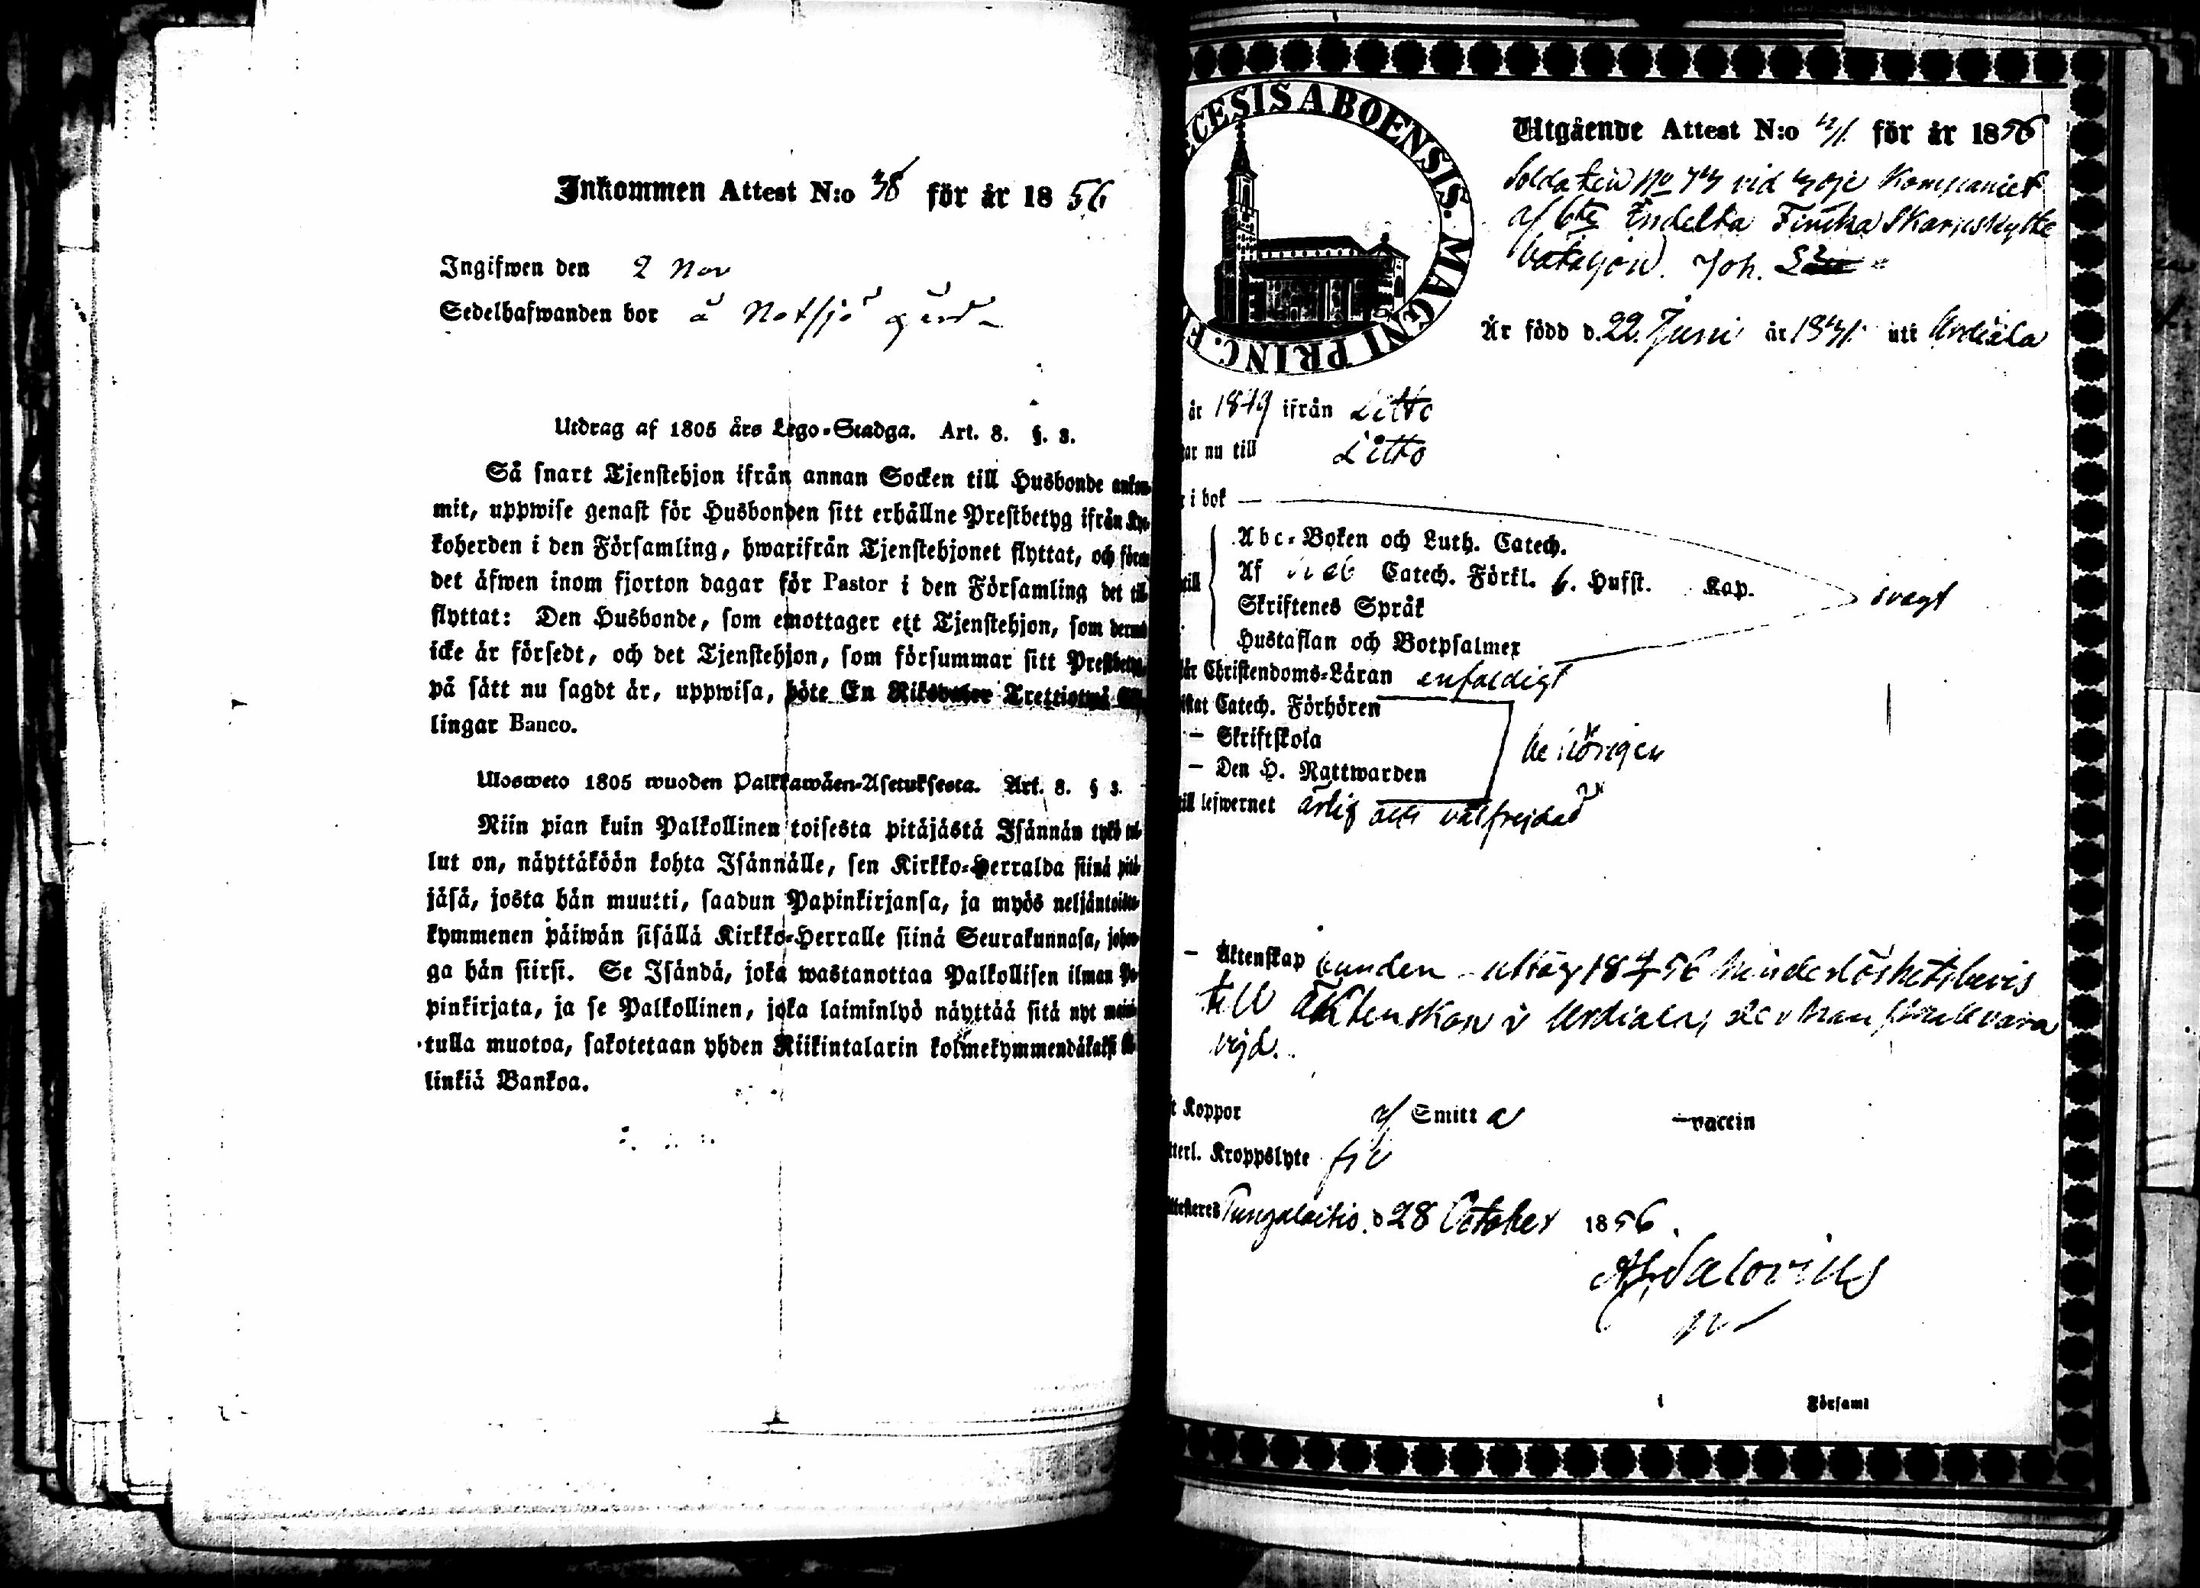 Inkommen Attest N:o 38 för år 1856
Ingifwen den 2 Nov
Sedelhafwanden bor å Notsjö gård
Utdrag af 1805 års Lego-Stadga. Art. 8. §. 3.
Så snart Tjenstehjon ifrån annan Socken till Husbonde ankom-
mit, uppwise genast för Husbonden sitt erhållne Prestbetyg ifrån Kyr-
koherden i den Församling, hwarifrån Tjenstehjonet flyttat, och förete
det äfwen inom fjorton dagar för Pastor i den Församling det till-
flyttat: Den Husbonde, som emottager ett Tjenstehjon, som dermed
icke är försedt, och det Tjenstehjon, som försummar sitt Prestbetyg,
på sätt nu sagdt är, uppwisa, böte En Riksdaler Trettiotwå Skil-
lingar Banco.
Ulosweto 1805 wuoden Palkkawäen-Asetuksesta. Art. 8. § 3.
Niin pian kuin Palkollinen toisesta pitäjästä Isännän tykö tul-
lut on, näyttäköön kohta Isännälle, sen Kirkko-Herralda siinä pitä-
jäsä, josta hän muutti, saadun Papinkirjansa, ja myös neljäntoista-
kymmenen päiwän sisällä Kirkko-Herralle siinä Seurakunnasa, johon-
ga hän siirsi. Se Isändä, joka wastanottaa Palkollisen ilman Pa-
pinkirjata, ja se Palkollinen, joka laiminlyö näyttää sitä nyt maini-
tulla muotoa, sakotetaan yhden Riikintalarin kolmekymmendäkaksi kil-
linkiä Bankoa.
ECESIS ABOENSIS. MAGNI PRINC. F
Utgående Attest N:o för år 1856
Soldaten No vid Kompaniet
af 6te Indelta Finska Skarpskytte
bataljon. Joh.
Är född d. 22 Juni år uti Urdiala
år 1849 ifrån Ditto
ar nu till Ditto
i bok
Abc-Boken och Luth. Catech.
till Af Catech. Förkl. 6. Hufst. Kap. svagt
Skriftenes Språk
Hustaflan och Botpsalmer
Christendoms-Läran enfaldigt
Catech. Förhören
— Skriftskola behörigen
— Den H. Nattwarden
till lefwernet ärlig och välfrejdad
— Äktenskap bunden uttog 1856 hinderslöshetsbevis
till Äktenskap i Urdiala, der han förut vara
vigd.
Koppor af Smitta —vaccin
tterl. Kroppslyte fri
Attesteres Tungalaitio. d 28 October 1856.
Salovius
i Församl